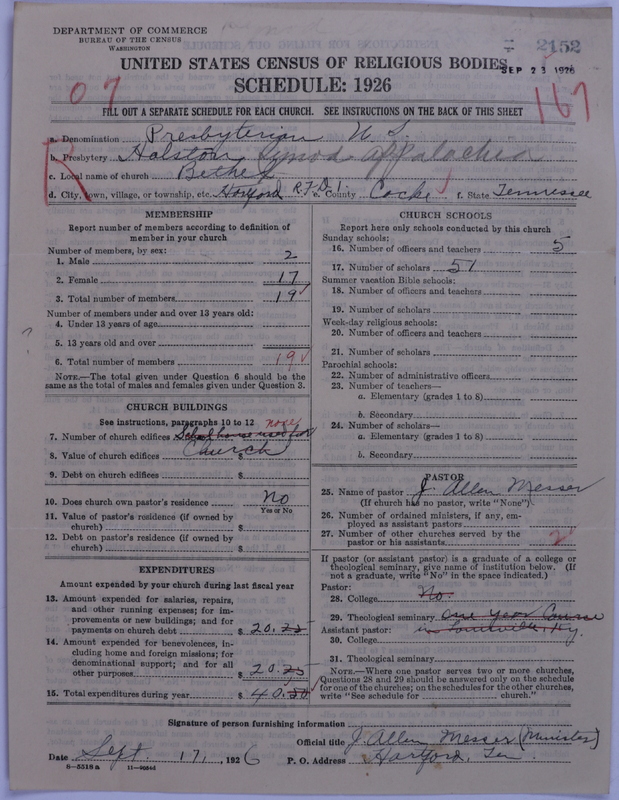 DEPARTMENT OF COMMERCE
BUREAU OF THE CENSUS
WASHINGTON
2152
UNITED STATES CENSUS OF RELIGIOUS BODIES
SEP 23 1926
SCHEDULE: 1926
07
167
FILL OUT A SEPARATE SCHEDULE FOR EACH CHURCH. SEE INSTRUCTIONS ON THE BACK OF THIS SHEET
R
a. Denomination Presbyterian U. S.
b. Presbytery Holston Synod Appalachia
c. Local name of church Bethel
d. City, town, village, or township, etc. Hartford R.F.D. 1. e. County Cocke f. State Tennessee
MEMBERSHIP
Report number of members according to definition of
member in your church
Number of members, by sex:
1. Male 2
2. Female 17
3. Total number of members 19
Number of members under and over 13 years old:
4. Under 13 years of age
5. 13 years old and over
6. Total number of members 19
NOTE.—The total given under Question 6 should be the
same as the total of males and females given under Question 3.
CHURCH BUILDINGS
See instructions, paragraphs 10 to 12
none
7. Number of church edifices School house used for
8. Value of church edifices $ Church
9. Debt on church edifices $
10. Does church own pastor's residence No
Yes or No
11. Value of pastor's residence (if owned by
church) $
12. Debt on pastor's residence (if owned by
church) $
EXPENDITURES
Amount expended by your church during last fiscal year
13. Amount expended for salaries, repairs,
and other running expenses; for im-
provements or new buildings; and for
payments on church debt $ 20.25
14. Amount expended for benevolences, in-
cluding home and foreign missions; for
denominational support; and for all
other purposes $ 20.25
15. Total expenditures during year $ 40.50
CHURCH SCHOOLS
Report here only schools conducted by this church
Sunday schools:
16. Number of officers and teachers 5
17. Number of scholars 51
Summer vacation Bible schools:
18. Number of officers and teachers
19. Number of scholars
Week-day religious schools:
20. Number of officers and teachers
21. Number of scholars
Parochial schools:
22. Number of administrative officers
23. Number of teachers—
a. Elementary (grades 1 to 8)
b. Secondary
24. Number of scholars—
a. Elementary (grades 1 to 8)
b. Secondary
PASTOR
25. Name of pastor J. Allen Messer
(If church has no pastor, write "None")
26. Number of ordained ministers, if any, em-
ployed as assistant pastors
27. Number of other churches served by the
pastor or his assistants 2
If pastor (or assistant pastor) is a graduate of a college or
theological seminary, give name of institution below. (If
not a graduate, write "No" in the space indicated.)
Pastor:
28. College No.
29. Theological seminary One year Course
Assistant pastor: in Louisville, Ky.
30. College
31. Theological seminary
NOTE.—Where one pastor serves two or more churches,
Questions 28 and 29 should be answered only on the schedule
for one of the churches; on the schedules for the other churches,
write "See schedule for church."
Signature of person furnishing information
Official title J. Allen Messer (Minister)
Date Sept. 17, 1926 P. O. Address Hartford, Ten
8—5518a 11—9054d